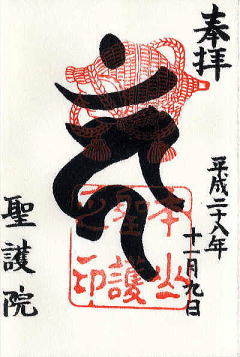 奉拝
平成二十八年
十一月九日
𑖮𑖳𑖽
聖護院
本山
聖護
之印